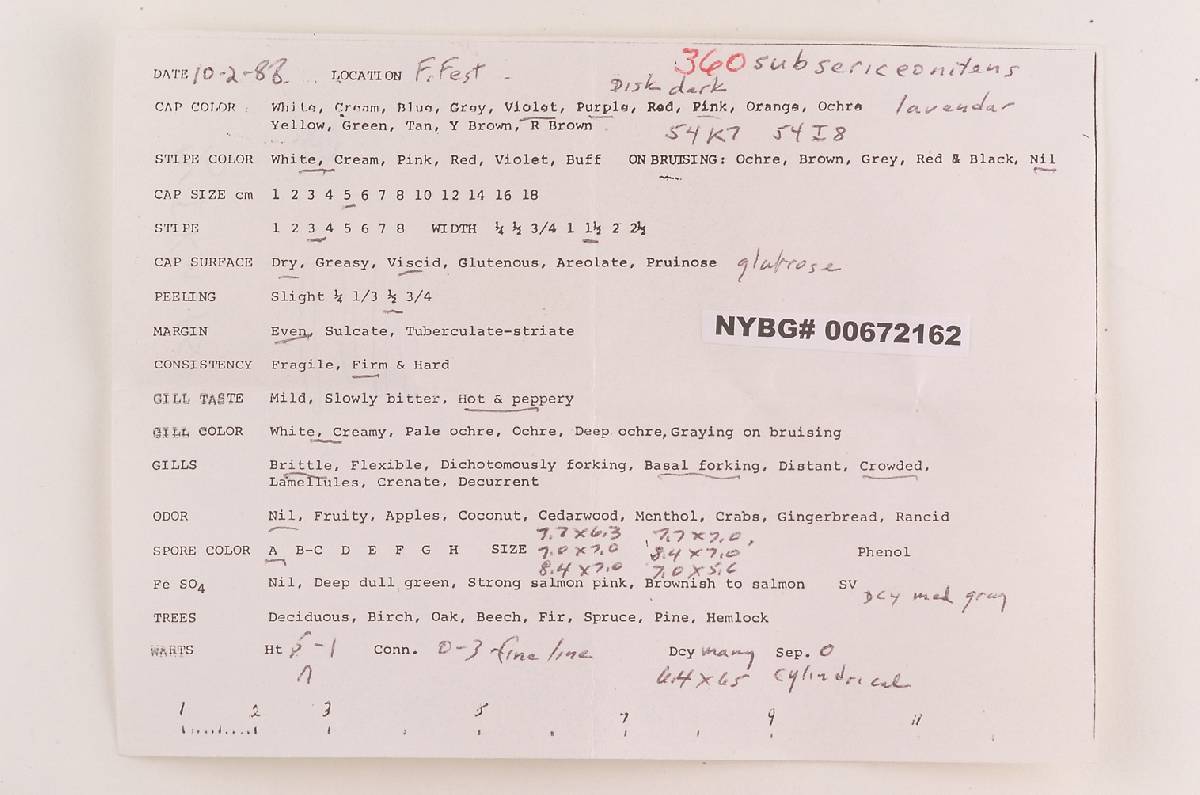 360 subsericeonitens
DATE 10-2-88 LOCATION F. Fest
Disk dark
CAP COLOR White, Cream, Blue, Gray, Violet, Purple, Red, Pink, Orange, Ochre lavendar
Yellow, Green, Tan, Y Brown, R Brown 54K7 54I8
STIPE COLOR White, Cream, Pink, Red, Violet, Buff ON BRUISING: Ochre, Brown, Grey, Red & Black, Nil
CAP SIZE cm 1 2 3 4 5 6 7 8 10 12 14 16 18
STIPE 1 2 3 4 5 6 7 8 WIDTH ¼ ½ 3/4 1 1½ 2 2½
CAP SURFACE Dry, Greasy, Viscid, Glutenous, Areolate, Pruinose glabrose
PEELING Slight ¼ 1/3 ½ 3/4
MARGIN Even, Sulcate, Tuberculate-striate
NYBG# 00672162
CONSISTENCY Fragile, Firm & Hard
GILL TASTE Mild, Slowly bitter, Hot & peppery
GILL COLOR White, Creamy, Pale ochre, Ochre, Deep ochre, Graying on bruising
GILLS Brittle, Flexible, Dichotomously forking, Basal forking, Distant, Crowded,
Lamellules, Crenate, Decurrent
ODOR Nil, Fruity, Apples, Coconut, Cedarwood, Menthol, Crabs, Gingerbread, Rancid
7.7 x 6.3 7.7 x 7.0,
SPORE COLOR A B-C D E F G H SIZE 7.0 x 7.0 8.4 x 7.0 Phenol
8.4 x 7.0 7.0 x 5.6
Fe SO4 Nil, Deep dull green, Strong salmon pink, Brownish to salmon SV
Dcy med gray
TREES Deciduous, Birch, Oak, Beech, Fir, Spruce, Pine, Hemlock
WARTS Ht -1 Conn. 0-3 fine line Dcy many Sep. 0
64 x 65 cylindrical
1 2 3 5 7 9 11